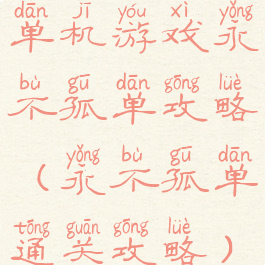 dān jī yóu xì yǒng
单机游戏永
bù gū dān gōng lüè
不孤单攻略
yǒng bù gū dān
（永不孤单
tōng guān gōng lüè
通关攻略）